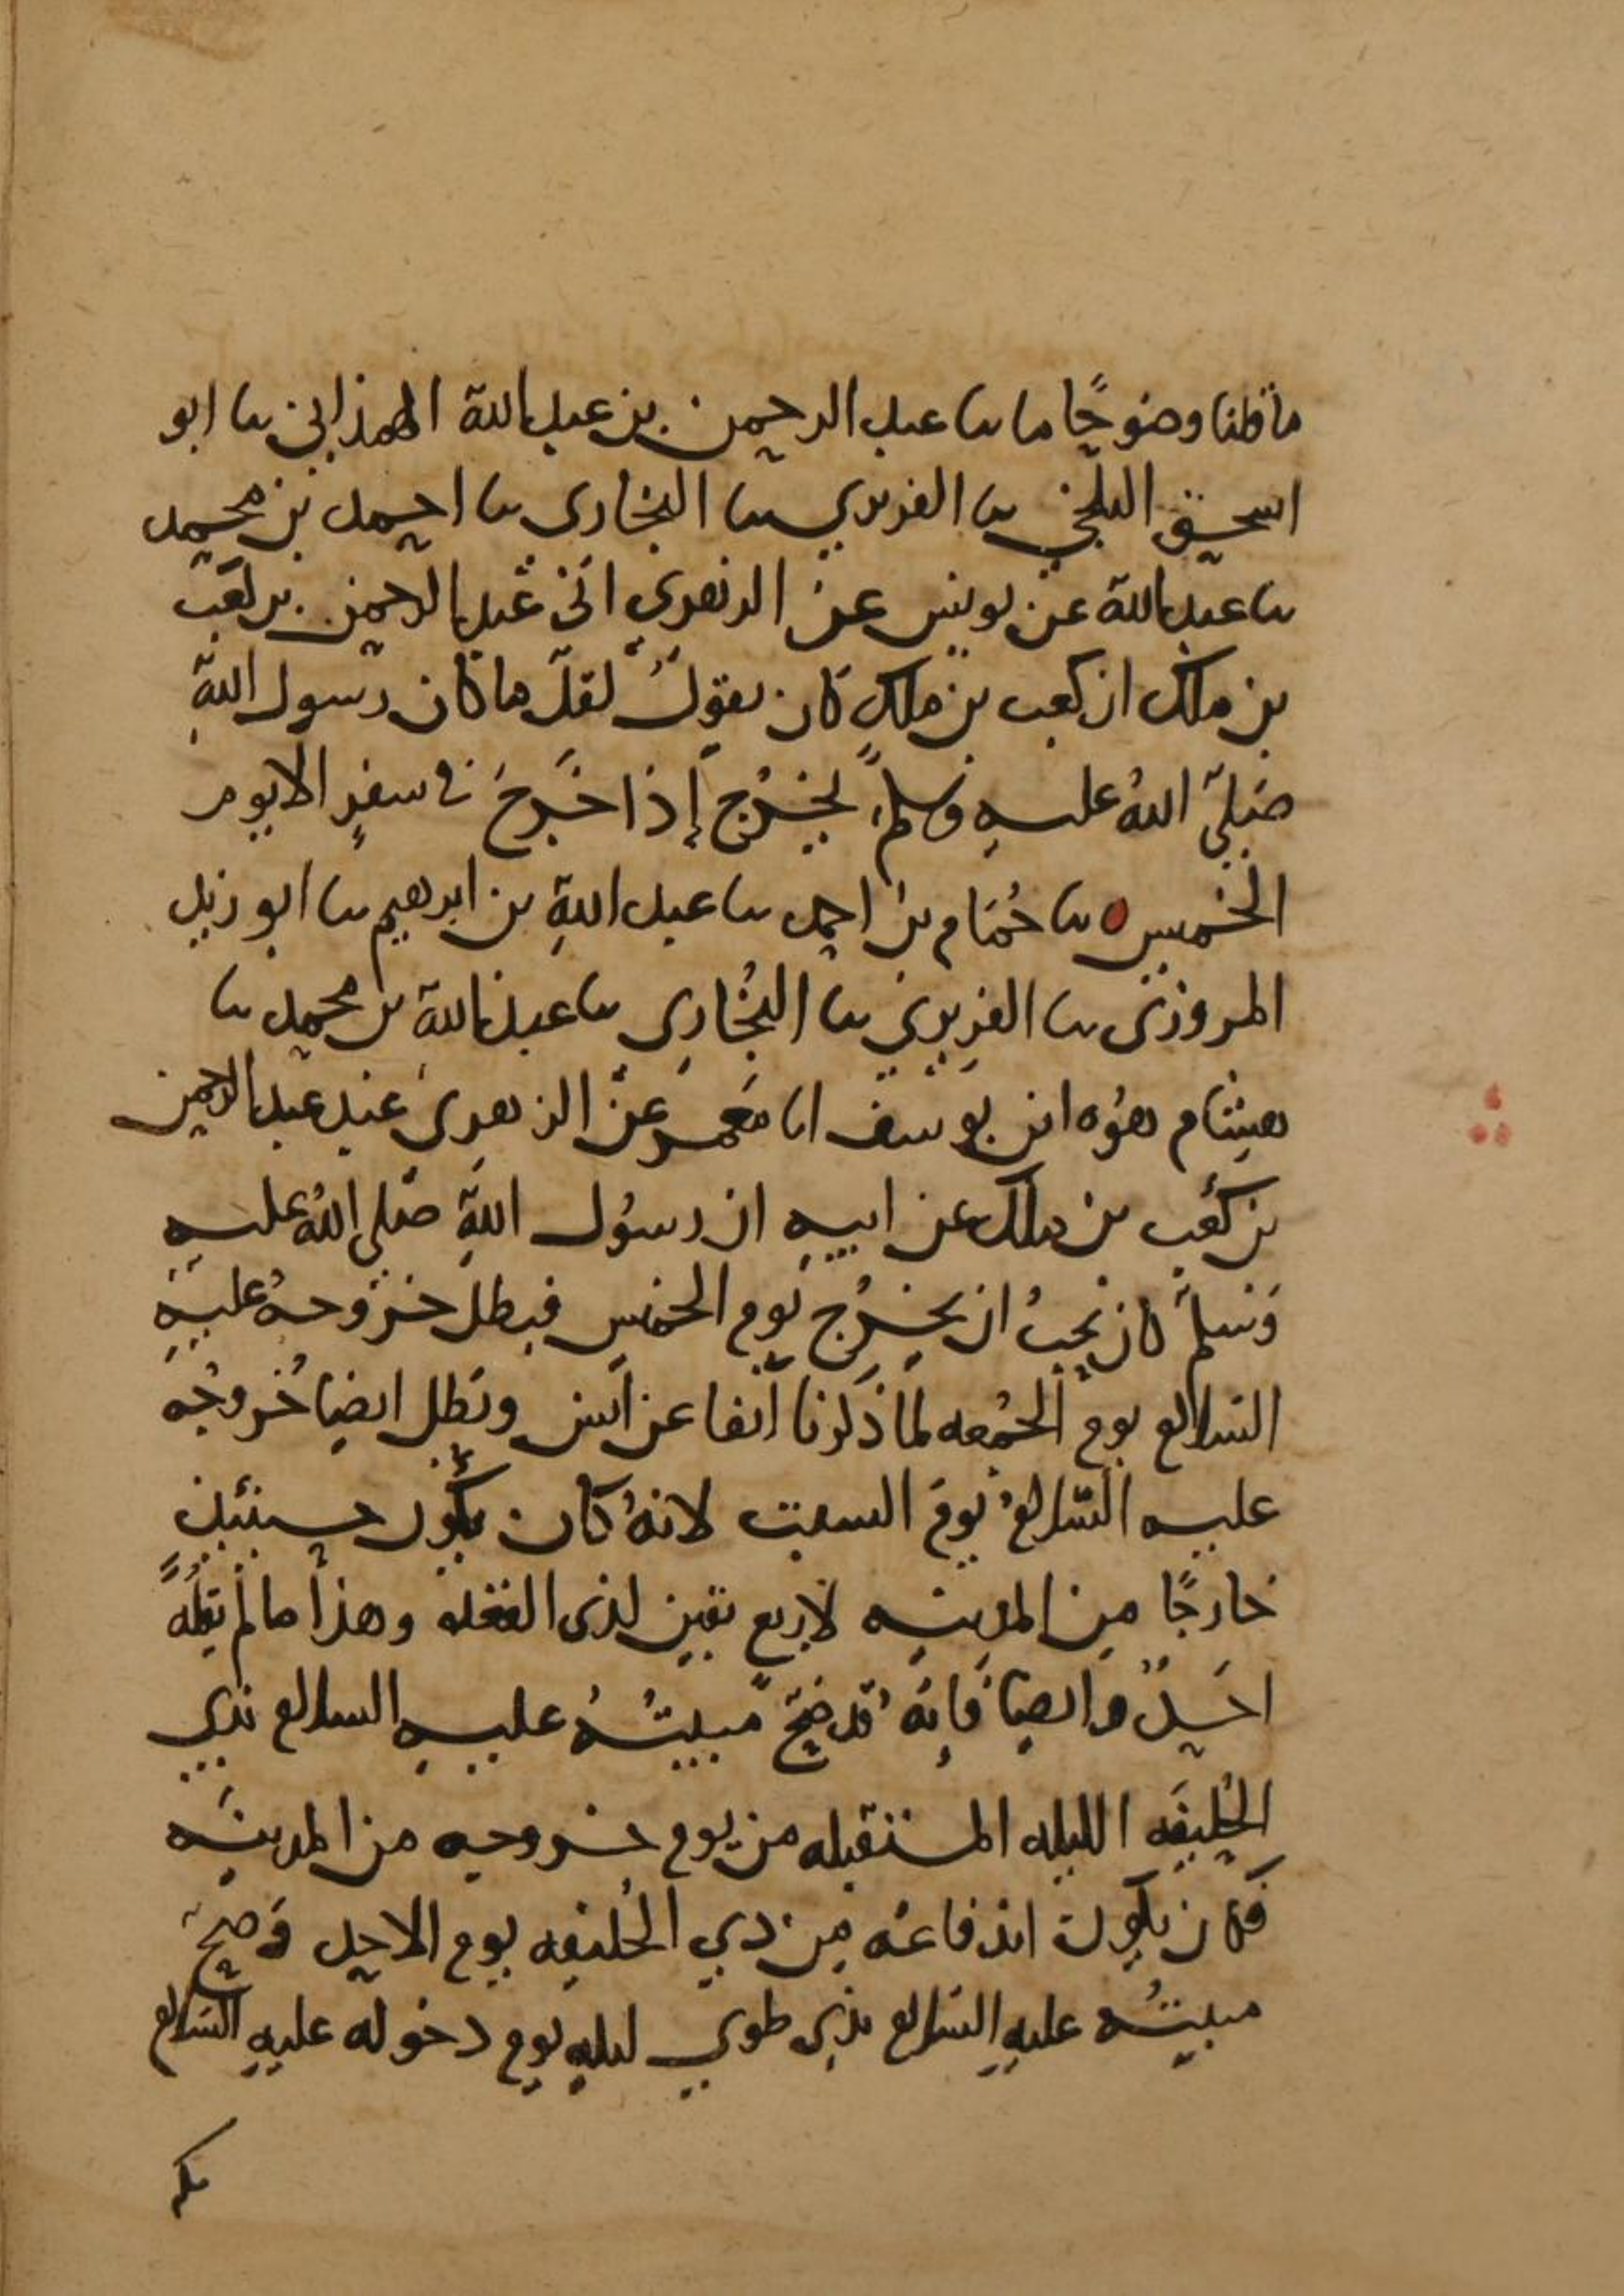 ما قلنا وضوحًا ما ثنا عبد الرحمن بن عبد الله الهمذاني ثنا ابو
اسحق البلخي ثنا الفربري ثنا البخاري ثنا احمد بن محمد
ثنا عبد الله عن يونس عن الزهري اخبرني عبد الرحمن بن كعب
بن ملك ان كعب بن ملك كان يقول لقلّ ما كان رسول الله
صلى الله عليه وسلم يخرج إذا خرج في سفر الا يوم
الخميس ثنا حُمَام بن احمد ثنا عبد الله بن ابرهيم ثنا ابو زيد
المروزي ثنا الفربري ثنا البخاري ثنا عبد الله بن محمد ثنا
هشام هو ابن يوسف انا معمر عن الزهري عن عبد الرحمن
بن كعب بن ملك عن ابيه ان رسول الله صلى الله عليه
وسلم كان يحب ان يخرج يوم الخميس فبطل خروجه عليه
السلام يوم الجمعه لما ذكرنا آنفا عن انس وبطل ايضا خروجه
عليه السلام يوم السبت لانه كان يكون حينئذ
خارجًا من المدينه لاربع بقين لذي القعده وهذا ما لم يقله
احد وايضا فانه قد صح مبيته عليه السلام بذي
الحليفه الليله المستقبله من يوم خروجه من المدينه
فكان يكون اندفاعه من ذي الحليفه يوم الاحد وصح
مبيته عليه السلام بذي طوي ليله يوم دخوله عليه السلام
مكه